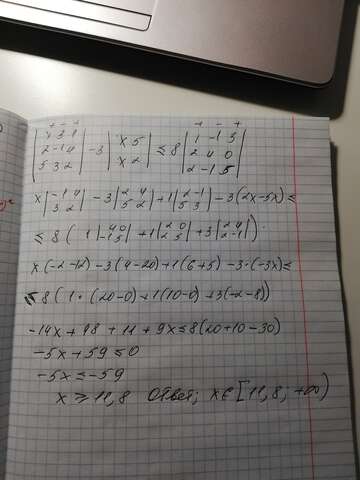 + - +
| x 3 1 |
| 2 -1 4 |
| 5 3 2 | -3 | x 5 |
| x 2 | ≤ 8
+ - +
| 1 -1 3 |
| 2 4 0 |
| 2 -1 5 |
x | -1 4 | | 3 2 | -3 | 2 4 | | 5 2 | +1 | 2 -1 | | 5 3 | -3(2x-5x) ≤
≤ 8 ( 1 | 4 0 | | -1 5 | +1 | 2 0 | | 2 5 | +3 | 2 4 | | 2 -1 | )
x(-2-12) -3(4-20)+1(6+5) -3·(-3x) ≤
≤ 8(1·(20-0)+1(10-0)+3(-2-8))
-14x+48+11+9x ≤ 8(20+10-30)
-5x+59 ≤ 0
-5x ≤ -59
x ≥ 11,8 Ответ; x ∈ [11,8; +∞)